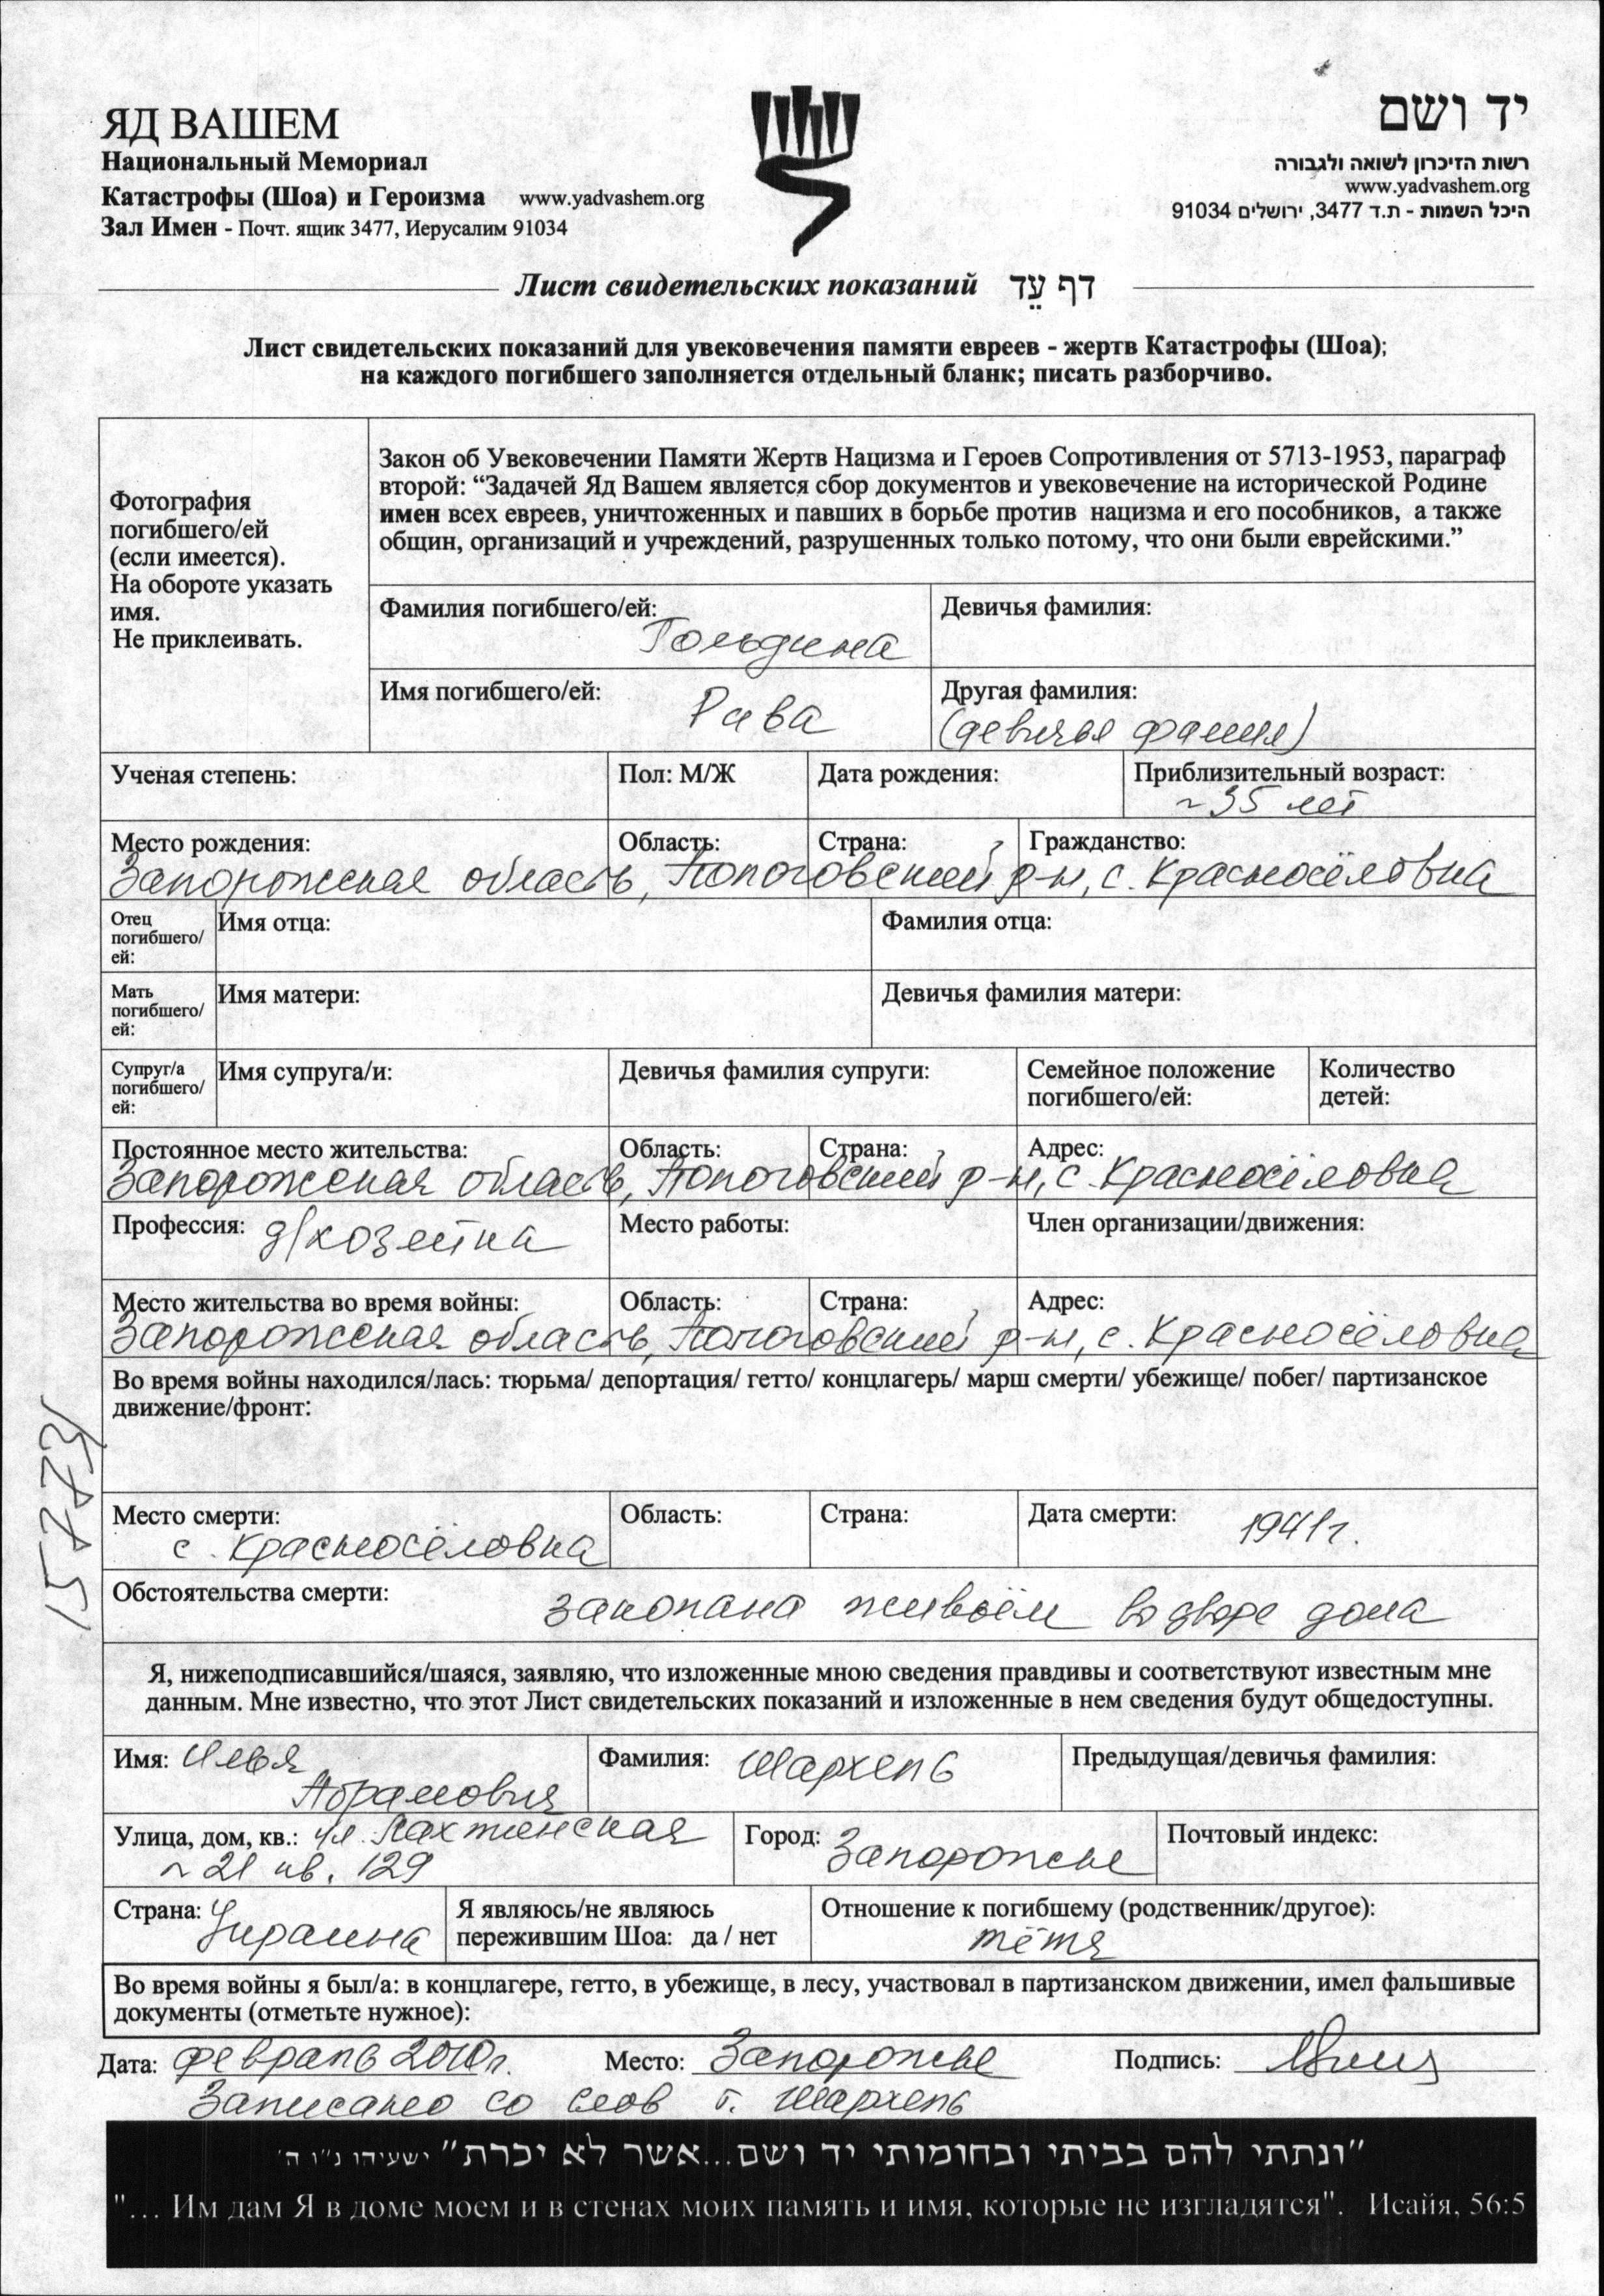 ЯД ВАШЕМ
Национальный Мемориал
Катастрофы (Шоа) и Героизма www.yadvashem.org
Зал Имен - Почт. ящик 3477, Иерусалим 91034
יד ושם
רשות הזיכרון לשואה ולגבורה
www.yadvashem.org
היכל השמות - ת.ד 3477, ירושלים 91034
Лист свидетельских показаний דף עֵד
Лист свидетельских показаний для увековечения памяти евреев - жертв Катастрофы (Шоа);
на каждого погибшего заполняется отдельный бланк; писать разборчиво.
Фотография
погибшего/ей
(если имеется).
На обороте указать
имя.
Не приклеивать.
Закон об Увековечении Памяти Жертв Нацизма и Героев Сопротивления от 5713-1953, параграф
второй: “Задачей Яд Вашем является сбор документов и увековечение на исторической Родине
имен всех евреев, уничтоженных и павших в борьбе против нацизма и его пособников, а также
общин, организаций и учреждений, разрушенных только потому, что они были еврейскими.”
Фамилия погибшего/ей: Девичья фамилия:
Гольдина
Имя погибшего/ей: Другая фамилия:
Рива (девичья фамия)
Ученая степень: Пол: М/Ж Дата рождения: Приблизительный возраст:
~ 35 лет
Место рождения: Область: Страна: Гражданство:
Запорожская область, Пологовский р-н, с. Красносёловка
Отец
погибшего/
ей:
Имя отца: Фамилия отца:
Мать
погибшего/
ей:
Имя матери: Девичья фамилия матери:
Супруг/а
погибшего/
ей:
Имя супруга/и: Девичья фамилия супруги: Семейное положение
погибшего/ей:
Количество
детей:
Постоянное место жительства: Область: Страна: Адрес:
Запорожская область, Пологовский р-н, с. Красносёловка
Профессия: д/хозяйка Место работы: Член организации/движения:
Место жительства во время войны: Область: Страна: Адрес:
Запорожская область, Пологовский р-н, с. Красносёловка
Во время войны находился/лась: тюрьма/ депортация/ гетто/ концлагерь/ марш смерти/ убежище/ побег/ партизанское
движение/фронт:
Место смерти: Область: Страна: Дата смерти: 1941г.
с. Красносёловка
Обстоятельства смерти: закопана живьём во дворе дома
Я, нижеподписавшийся/шаяся, заявляю, что изложенные мною сведения правдивы и соответствуют известным мне
данным. Мне известно, что этот Лист свидетельских показаний и изложенные в нем сведения будут общедоступны.
Имя: Илья Фамилия: Шархель Предыдущая/девичья фамилия:
Абрамович
Улица, дом, кв.: ул. Город: Запорожье Почтовый индекс:
~ 21 кв. 129
Страна: Украина Я являюсь/не являюсь
пережившим Шоа: да / нет
Отношение к погибшему (родственник/другое):
тётя
Во время войны я был/а: в концлагере, гетто, в убежище, в лесу, участвовал в партизанском движении, имел фальшивые
документы (отметьте нужное):
Дата: февраль 2010г. Место: Запорожье Подпись:
Записано со слов г. Шархель
"ונתתי להם בביתי ובחומותי יד ושם...אשר לא יכרת" ישעיהו נ"ו ה'
"... Им дам Я в доме моем и в стенах моих память и имя, которые не изгладятся". Исайя, 56:5